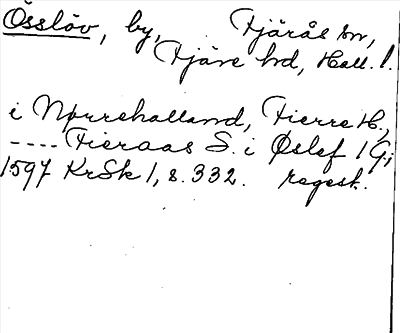 Össlöv, by, Fjärås sn,
Fjäre hd, Hall. l.
i Nørrehalland, Fierre H.,
---- Fieraas S. i Øslef 1 G.;
1597 KrSk 1, s. 332. regest.